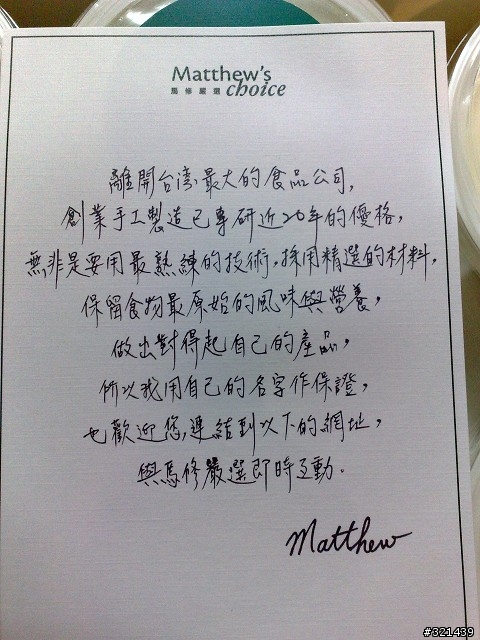 Matthew's
馬修嚴選 choice
離開台湾最大的食品公司,
創業手工製造已專研近20年的優格,
無非是要用最熟練的技術,採用精選的材料,
保留食物最原始的風味與營養,
做出對得起自己的產品,
所以我用自己的名字作保證,
也歡迎您,連結到以下的網址,
與馬修嚴選即時互動.
Matthew
#321439